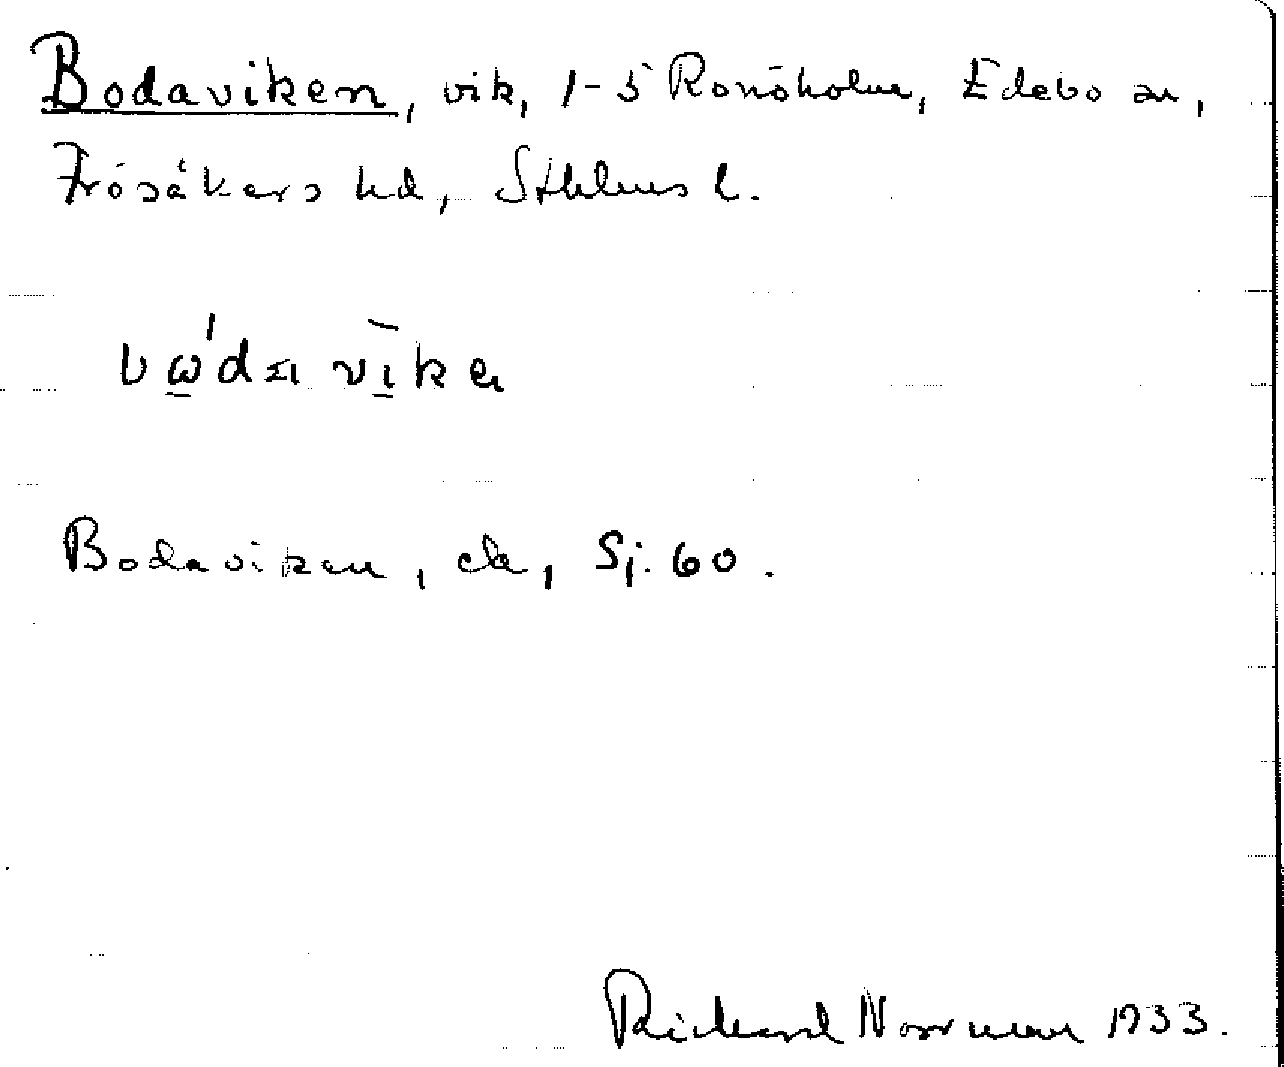 Bodaviken, vik, 1-5 Ronöholm, Edebo sn,
Frösåkers hd, Sthlms l.
Bodaviken, ek, Sj. 60.
Rickard Norrman 1933.